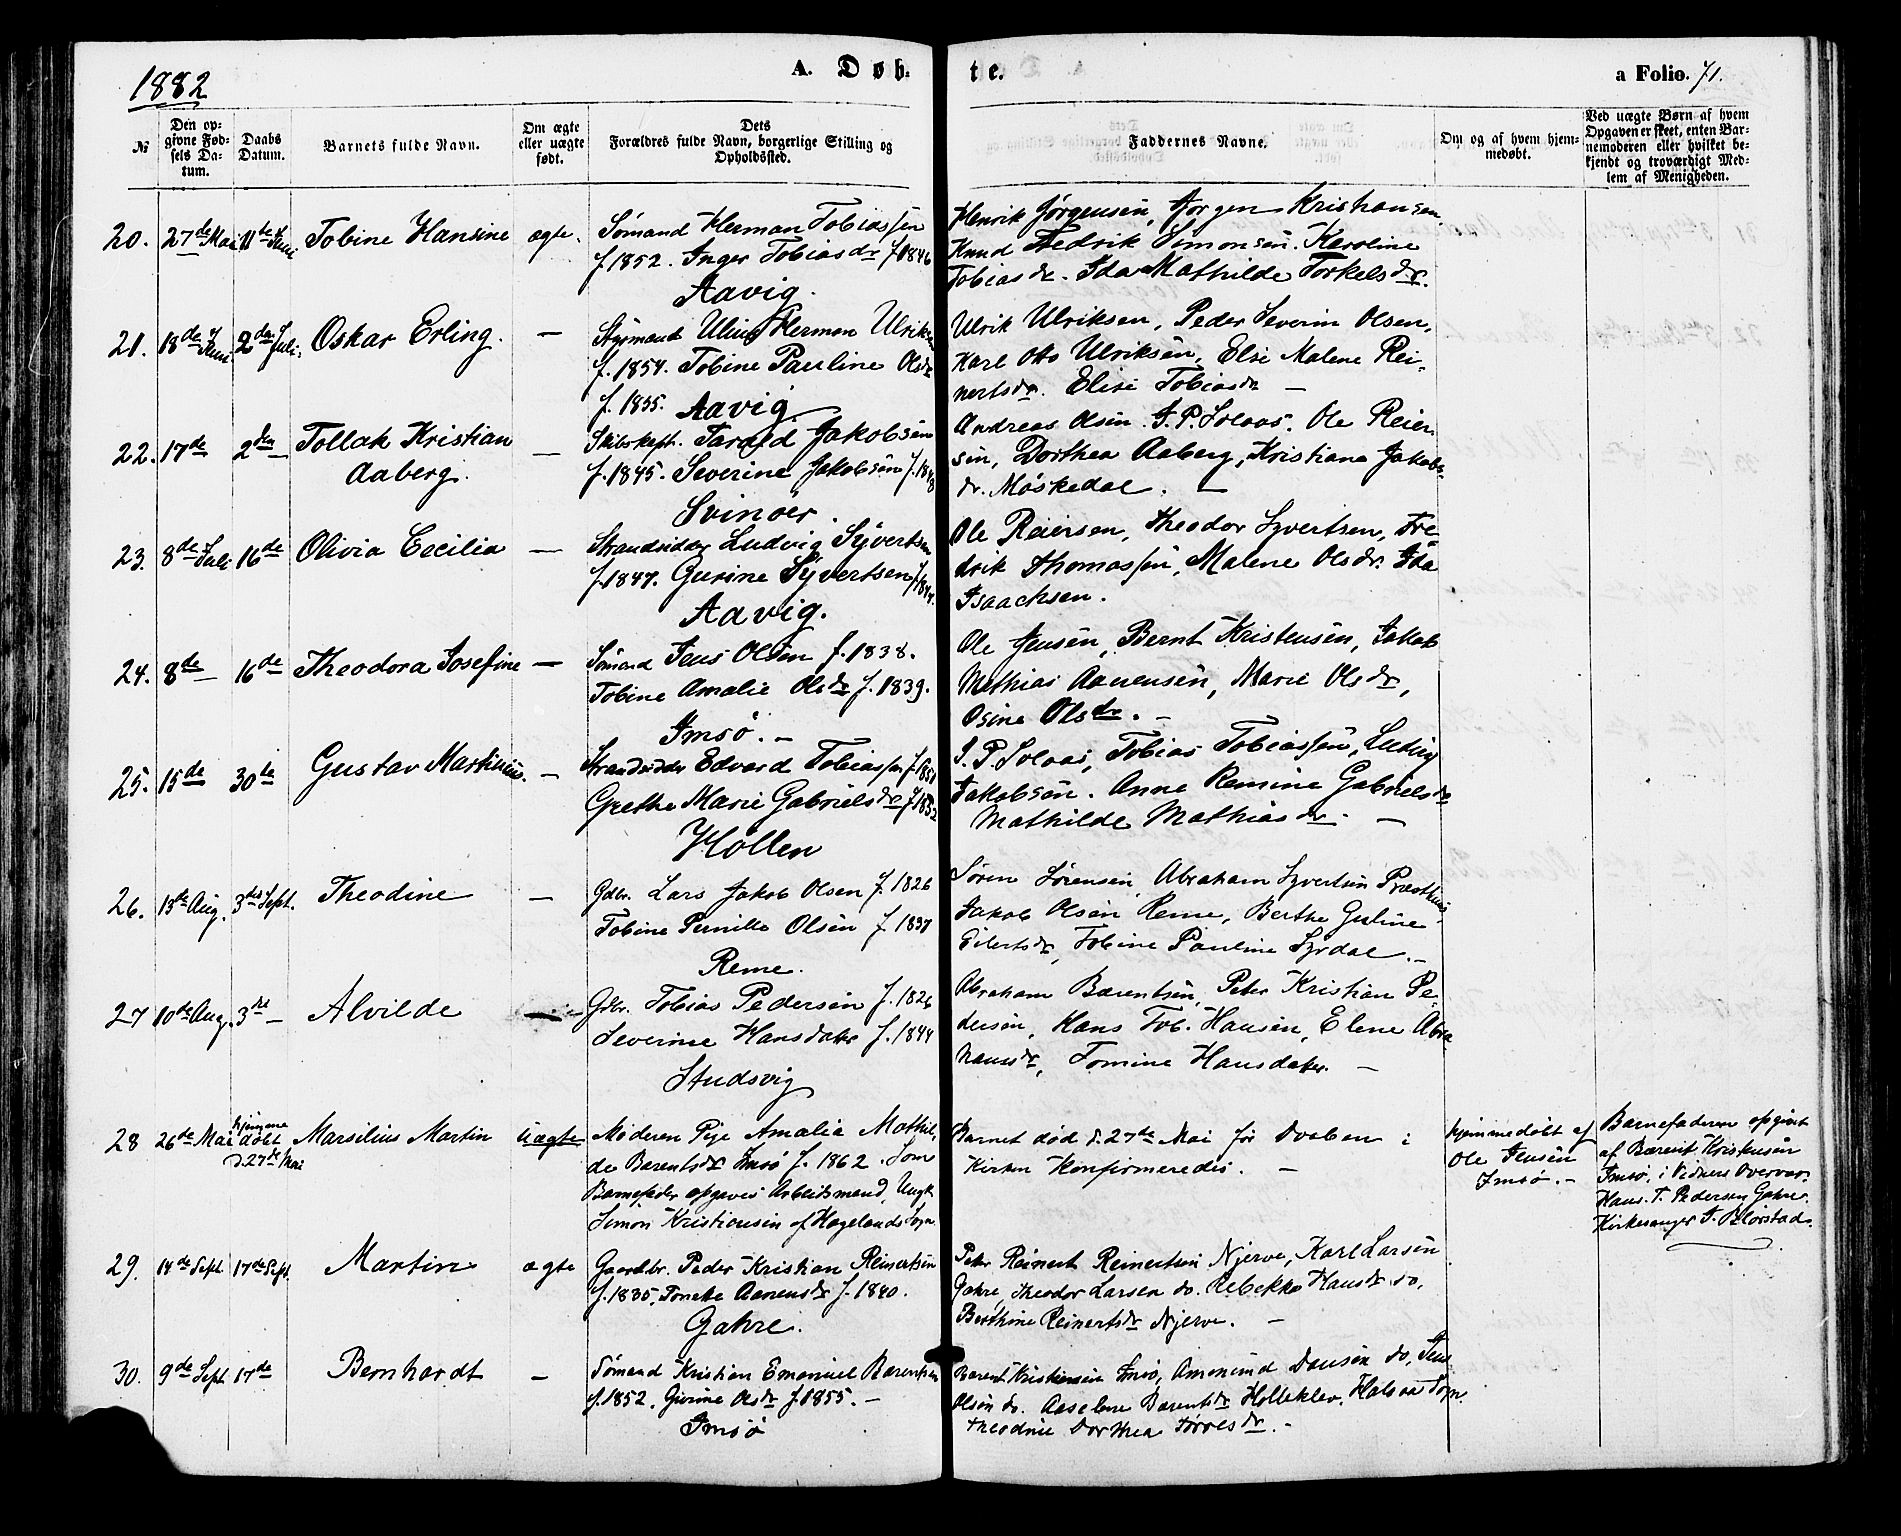 1882
A. Døb-
te.
a Folio. 71.
№
Den op-
givne Fød-
sels Da-
tum.
Daabs
Datum.
Barnets fulde Navn.
Om ægte
eller uægte
født.
Dets
Forældres fulde Navn, borgerlige Stilling og
Opholdssted.
Faddernes Navne.
Om og af hvem hjem-
medøbt.
Ved uægte Børn af hvem
Opgaven er skeet, enten Bar-
nemoderen eller hvilket be-
kjendt og troværdigt Med-
lem af Menigheden.
20. 27de Mai 11te Juni Tobine Hansine ægte.
Sømand Herman Tobiassen
f. 1852. Inger Tobiasdr f. 1846
Aavig.
Henrik Jørgensen, Jørgen Kristiansen,
Knud Fredrik Simonsen. Karoline
Tobiasdr. Ida Mathilde Torkelsdr.
21. 18de Juni 2den Juli. Oskar Erling. —
Styrmand Ulius Herman Ulriksen
f. 1854. Tobine Pauline Olsdr
f. 1855. Aavig
Ulrik Ulriksen, Peder Severin Olsen,
Karl Otto Ulriksen, Elsi Malene Rei-
nertsdr. Elise Tobiasdr —
22. 17de 2den — Tollak Kristian
Aaberg. —
Skibskapt. Tarald Jakobsen
f. 1845. Severine Jakobsen f. 1848
Svinøer.
Andreas Olsen. J. P. Solaas. Ole Reier-
sen, Dorthea Aaberg, Kristiane Jakobs-
dr. Møskedal. —
23. 8de Juli 16de Olivia Cecilia —
Strandsidder Ludvig Syvertsen
f. 1847. Gurine Syvertsen f. 1844.
Aavig.
Ole Reiersen, Theodor Syvertsen, Fre-
drik Thomassen, Malene Olsdr. Ida
Isaachsen.
24. 8de — 16de Theodora Josefine —
Sømand Jens Olsen f. 1838.
Tobine Amalie Olsdr f. 1839.
Imsø. —
Ole Jensen, Bernt Kristensen, Jakob
Mathias Aanensen, Marie Olsdr,
Osine Olsdr. —
25. 15de 30te Gustav Martinius. —
Strandsidder Edvard Tobiassen f. 1850
Grethe Marie Gabrielsdr f. 1852
Høllen
J. P. Solaas, Tobias Tobiassen, Ludvig
Jakobsen. Anne Remine Gabrielsdr
Mathilde Mathiasdr. —
26. 13de Aug. 3die Sept. Theodine —
Gdbr. Lars Jakob Olsen f. 1826
Tobine Pernille Olsen f. 1837
Reme.
Søren Sørensen, Abraham Syvertsen Præsthus,
Jakob Olsen Reme, Berthe Guline
Eilertsdr, Tobine Pauline Syrdal. —
27 10de Aug. 3die — Alvilde —
Gdbr. Tobias Pedersen f. 1826
Severine Hansdatter f. 1844
Studsvig
Abraham Bærentsen, Peter Kristian Pe-
dersen, Hans Tob. Hansen, Elene Abra-
hamsdr, Tomine Hansdater. —
28 26de Mai hjemme
døbt
d. 27de Mai Marsilius Martin Uægte
Moderen Pige Amalie Mathil-
de Barentsdr Imsø f. 1862. Som
Barnefader opgaves Arbeidsmand, Ungk.
Simon Kristiensen af Hægelands Sogn.
Barnet død d. 27de Mai før Daaben i
Kirken Konfirmeredes. —
Hjemmedøbt af
Ole Jensen
Imsø. —
Barnefaderen opgivet
af Bærent Kristensen
Imsø, i Vidners Overvær.
Hans T. Pedersen Gahre.
Kirkesanger J. Blørstad.
29. 14de Sept 17de Sept. Martin ægte
Gaardbr. Peder Kristian Reinertsen
f. 1835, Tomethe Aanensdr f. 1840.
Gahre.
Peter Reinert Reinertsen Njerve, Karl Larsen
Gahre, Theodor Larsen do. Rebekka Hansdr do,
Berthine Reinertsdr Njerve. —
30. 9de Sept 17de Bernhardt —
Sømand Kristian Emanuel Barentsen
f. 1852. Gurine Olsdr f. 1855. —
Imsø
Barent Kristensen Imsø, Amonund Daniel do, Jens
Olsen do. Aaselene Barentsdr Holleklev. Halsaa Sogn.
Theodine Dorthea Torolsdr. —